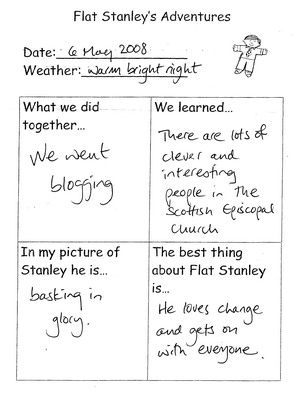 Flat Stanley's Adventures
Date: 6 May 2008
Weather: warm bright night
What we did
together...
We went
blogging
We learned...
There are lots of
clever and
interesting
people in The
Scottish Episcopal
Church
In my picture of
Stanley he is...
basking in
glory.
The best thing
about Flat Stanley
is...
He loves change
and gets on
with everyone.